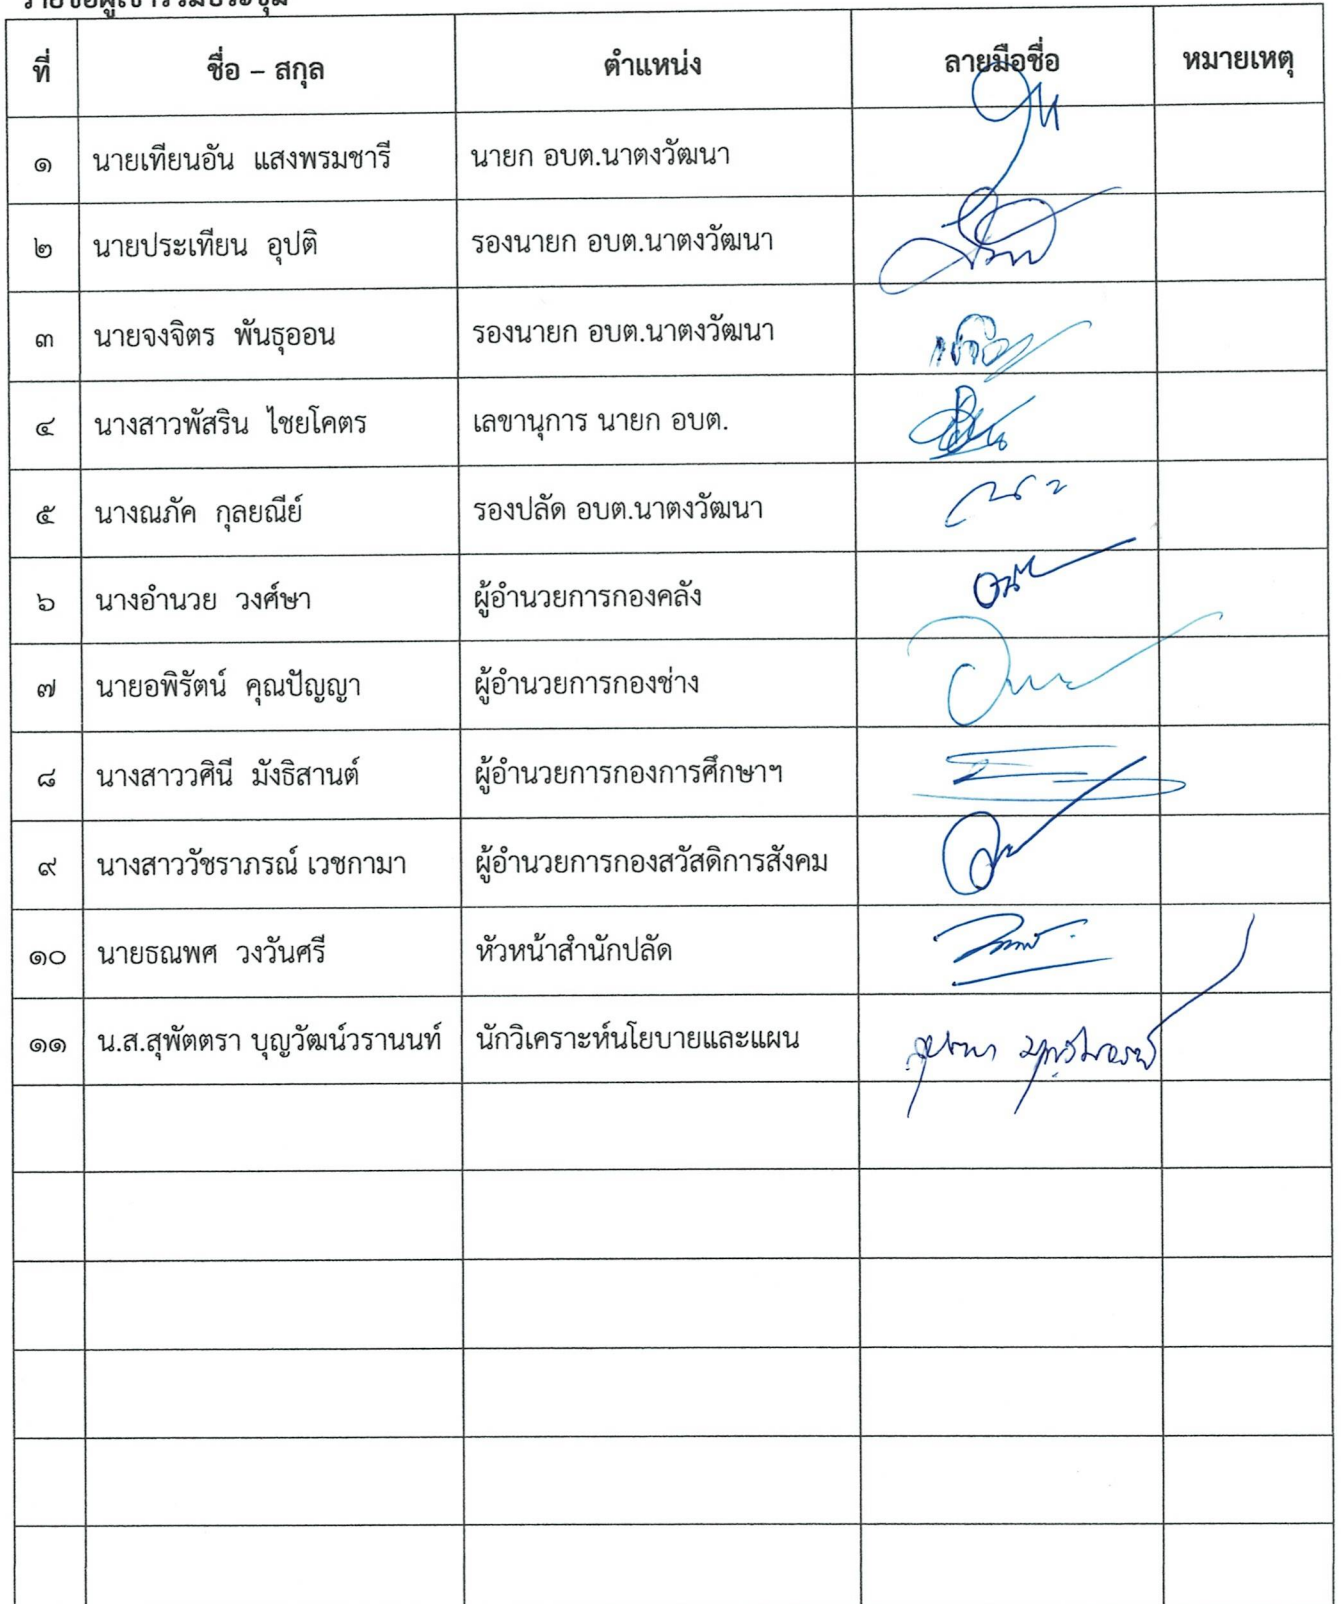 รายชื่อผู้เข้าร่วมประชุม
ที่ ชื่อ – สกุล ตำแหน่ง ลายมือชื่อ หมายเหตุ
๑ นายเทียนอัน แสงพรมชารี นายก อบต.นาตงวัฒนา
๒ นายประเทียน อุปติ รองนายก อบต.นาตงวัฒนา
๓ นายจงจิตร พันธุออน รองนายก อบต.นาตงวัฒนา
๔ นางสาวพัสริน ไชยโคตร เลขานุการ นายก อบต.
๕ นางณภัค กุลยณีย์ รองปลัด อบต.นาตงวัฒนา
๖ นางอำนวย วงศ์ษา ผู้อำนวยการกองคลัง
๗ นายอพิรัตน์ คุณปัญญา ผู้อำนวยการกองช่าง
๘ นางสาววศินี มังธิสานต์ ผู้อำนวยการกองการศึกษาฯ
๙ นางสาววัชราภรณ์ เวชกามา ผู้อำนวยการกองสวัสดิการสังคม
๑๐ นายธณพศ วงวันศรี หัวหน้าสำนักปลัด
๑๑ น.ส.สุพัตตรา บุญวัฒน์วรานนท์ นักวิเคราะห์นโยบายและแผน